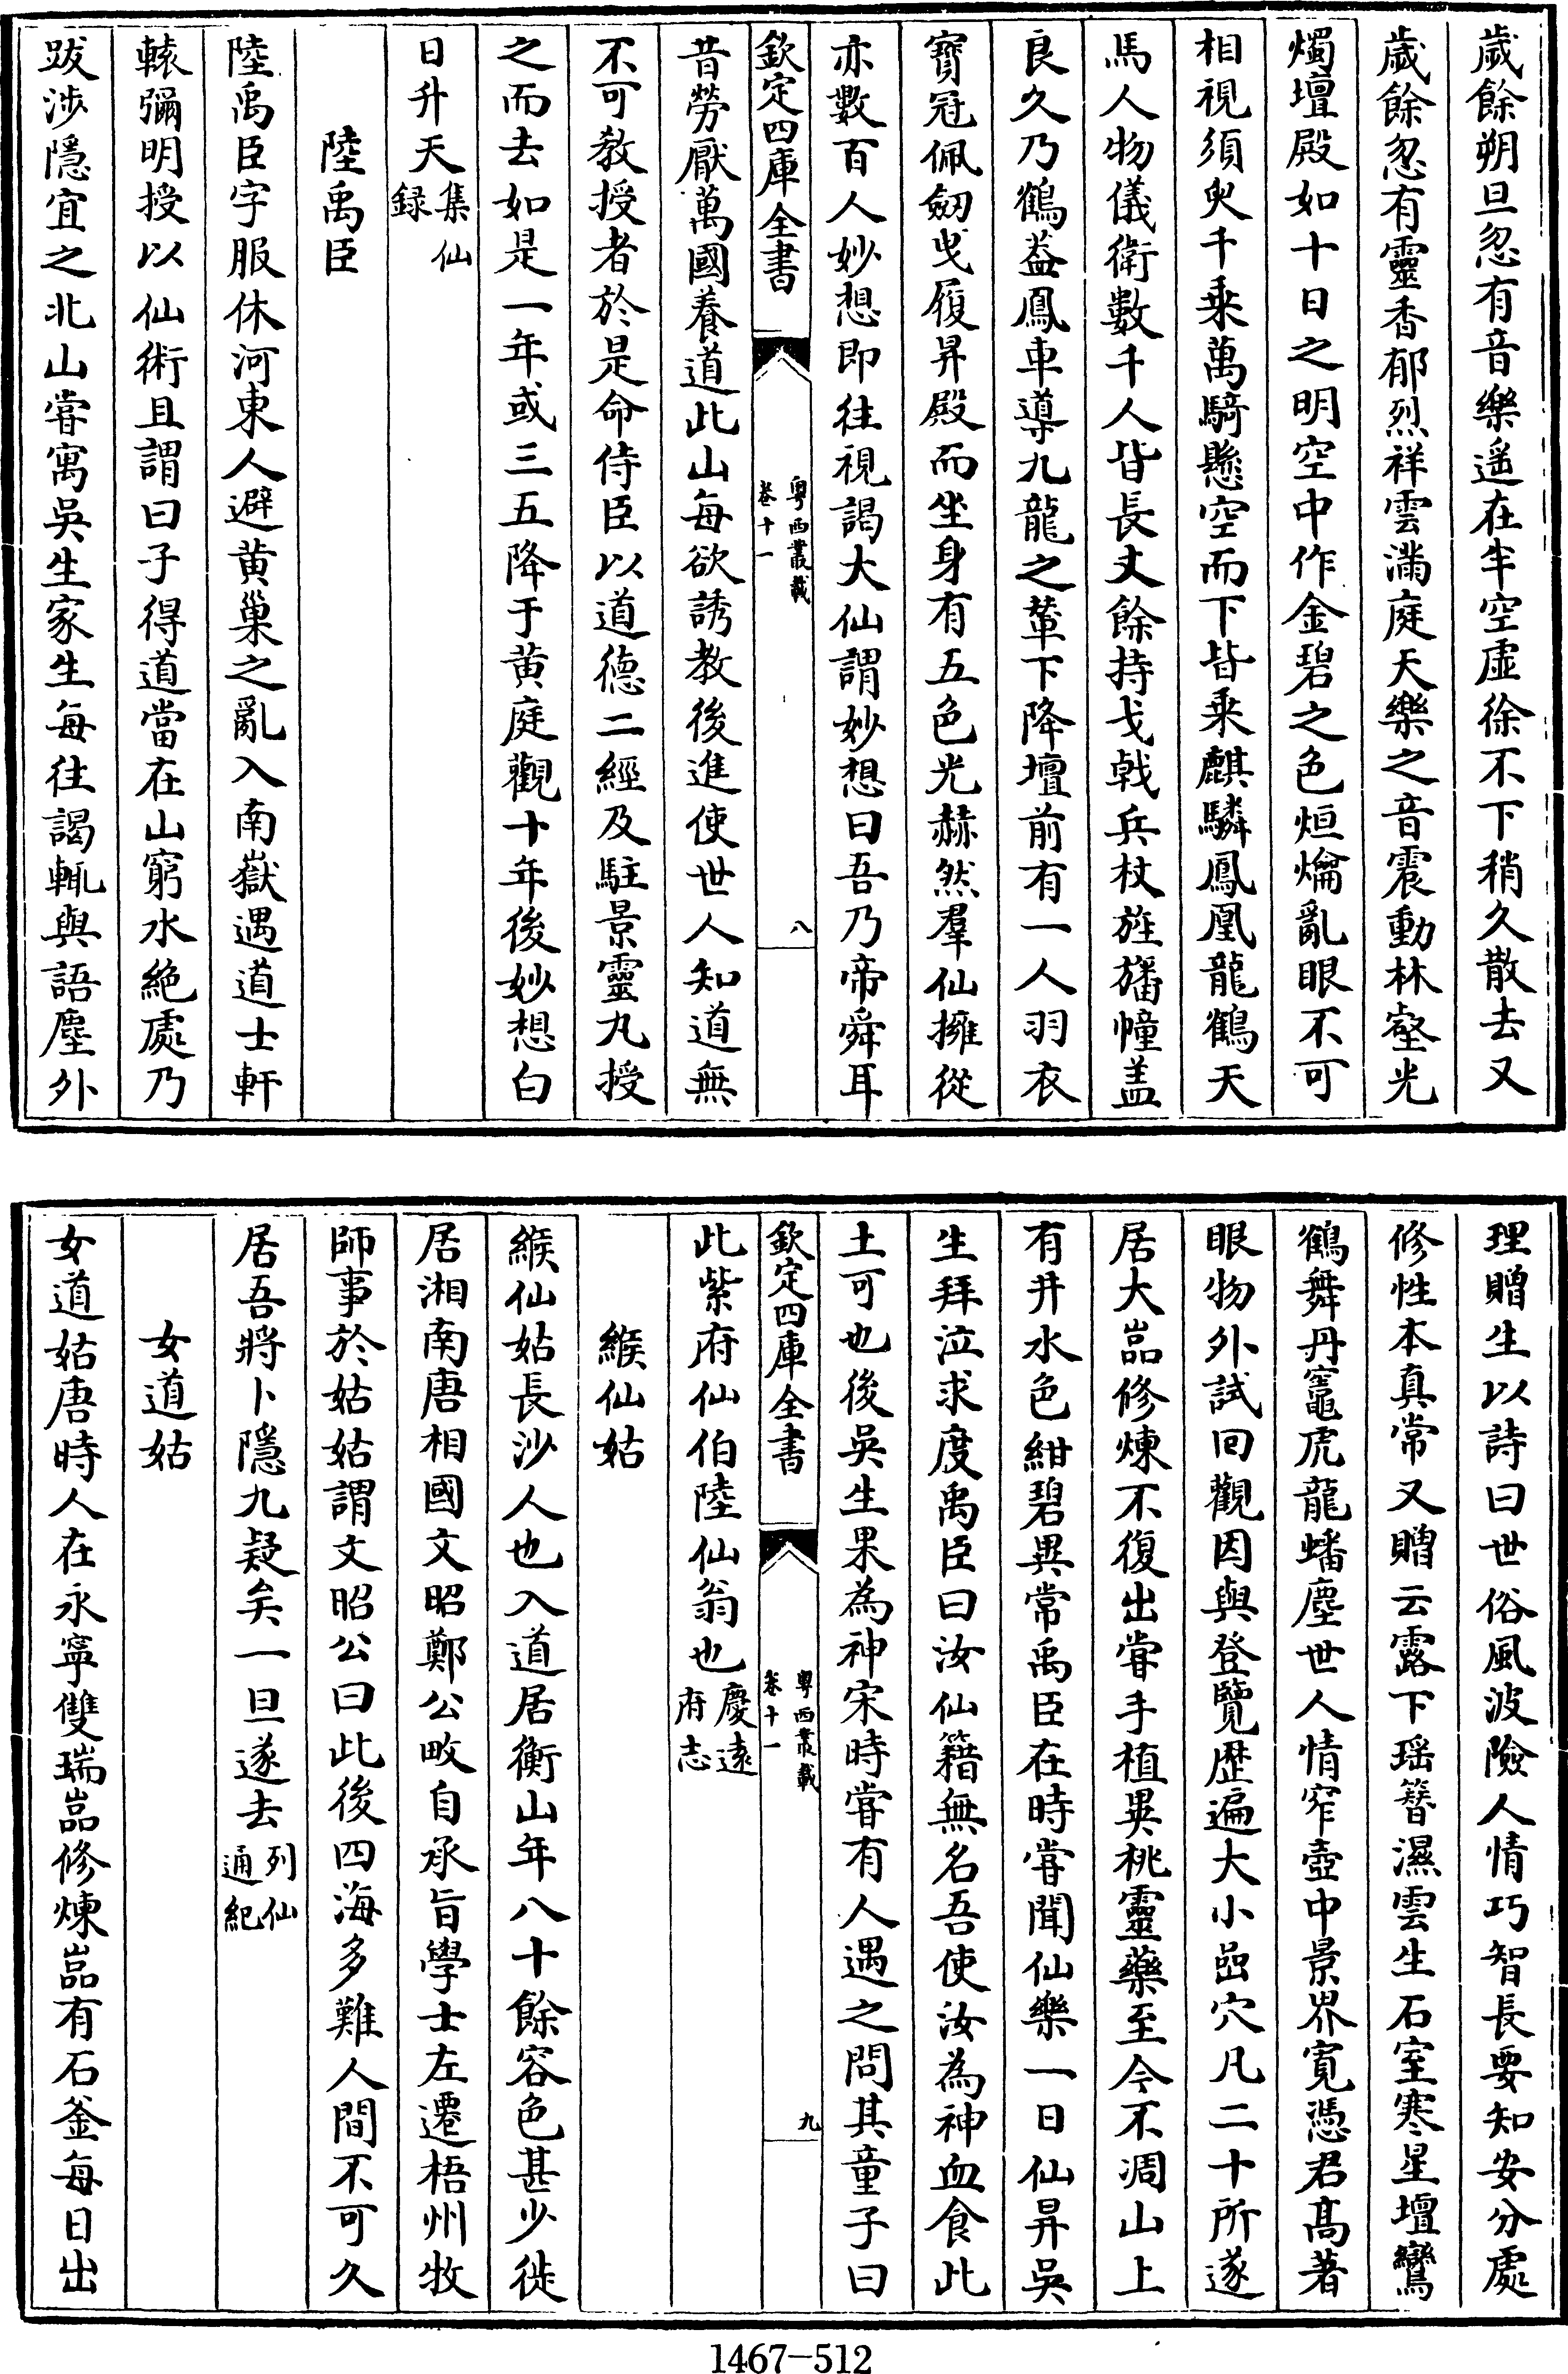 歲餘朔旦忽有音樂遥在半空虛徐不下稍久散去又
歲餘忽有靈香郁烈祥雲滿庭天樂之音震動林壑光
燭壇殿如十日之明空中作金碧之色烜爚亂眼不可
相視須臾千乗萬騎懸空而下皆乗麒驎鳳凰龍鶴天
馬人物儀衛數千人皆長丈餘持戈戟兵杖旌旛幢盖
良久乃鶴葢鳳車導九龍之輦下降壇前有一人羽衣
寳冠佩劒曵履昇殿而坐身有五色光赫然羣仙擁從
亦數百人妙想即往視謁大仙謂妙想曰吾乃帝舜耳
欽定四庫全書
粤西叢載
卷十一
八
昔勞厭萬國養道此山每欲誘教後進使世人知道無
不可教授者於是命侍臣以道德二經及駐景靈丸授
之而去如是一年或三五降于黄庭觀十年後妙想白
日升天集仙録
陸禹臣
陸禹臣字服休河東人避黄巢之亂入南嶽遇道士軒
轅彌明授以仙術且謂曰子得道當在山窮水絶處乃
跋涉隱宜之北山嘗寓吳生家生每往謁輒與語塵外
理贈生以詩曰世俗風波險人情巧智長要知安分處
修性本真常又贈云露下瑶簪濕雲生石室寒星壇鸞
鶴舞丹竈虎龍蟠塵世人情窄壺中景界寛憑君髙著
眼物外試回觀因與登覽歴遍大小嵓穴凡二十所遂
居大嵓修煉不復出嘗手植異桃靈藥至今不凋山上
有井水色紺碧異常禹臣在時嘗聞仙樂一日仙昇吳
生拜泣求度禹臣曰汝仙籍無名吾使汝為神血食此
土可也後吳生果為神宋時嘗有人遇之問其童子曰
欽定四庫全書
粤西叢載
卷十一
九
此紫府仙伯陸仙翁也慶遠府志
緱仙姑
緱仙姑長沙人也入道居衡山年八十餘容色甚少徙
居湘南唐相國文昭鄭公畋自承旨學士左遷梧州牧
師事於姑姑謂文昭公曰此後四海多難人間不可久
居吾將卜隱九疑矣一旦遂去列仙通紀
女道姑
女道姑唐時人在永寧雙瑞嵓修煉嵓有石釜每日出
1467-512